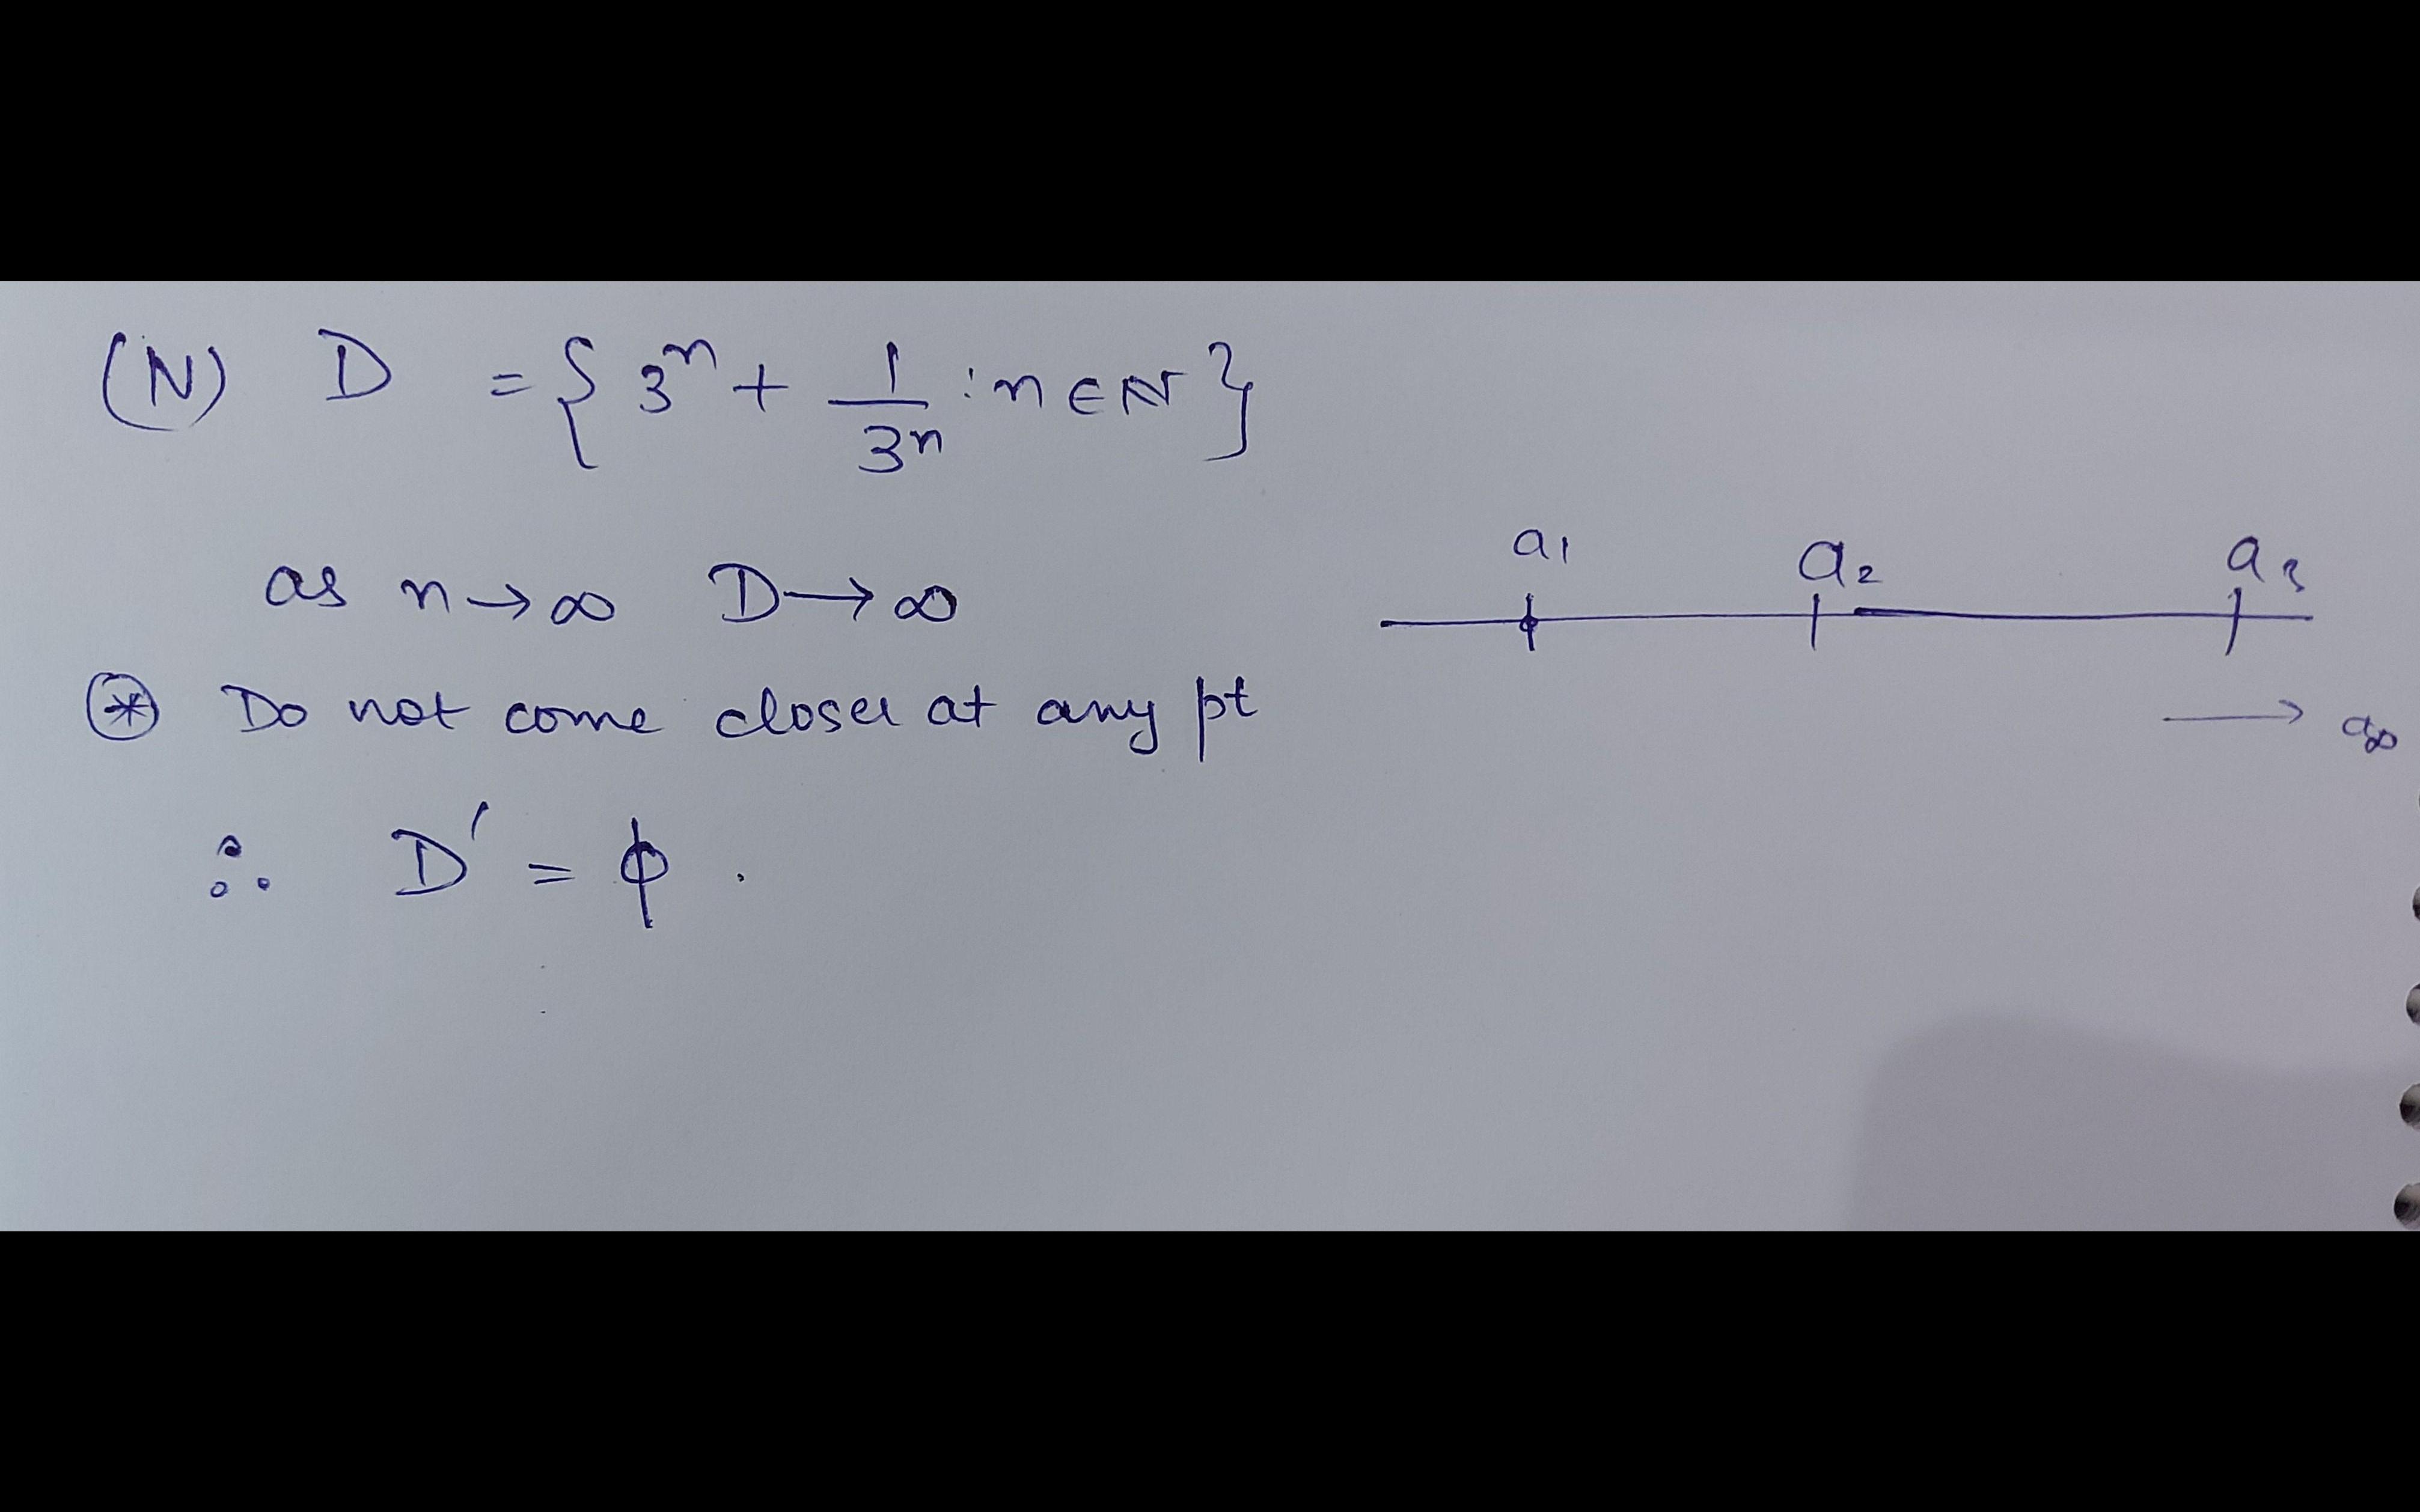 (N) D = { 3ⁿ + 1/3ⁿ : n ∈ ℕ }
a₁ a₂ a₃
as n → ∞ D → ∞
⊛ Do not come closer at any pt
→ ∞
∴ D′ = ϕ .